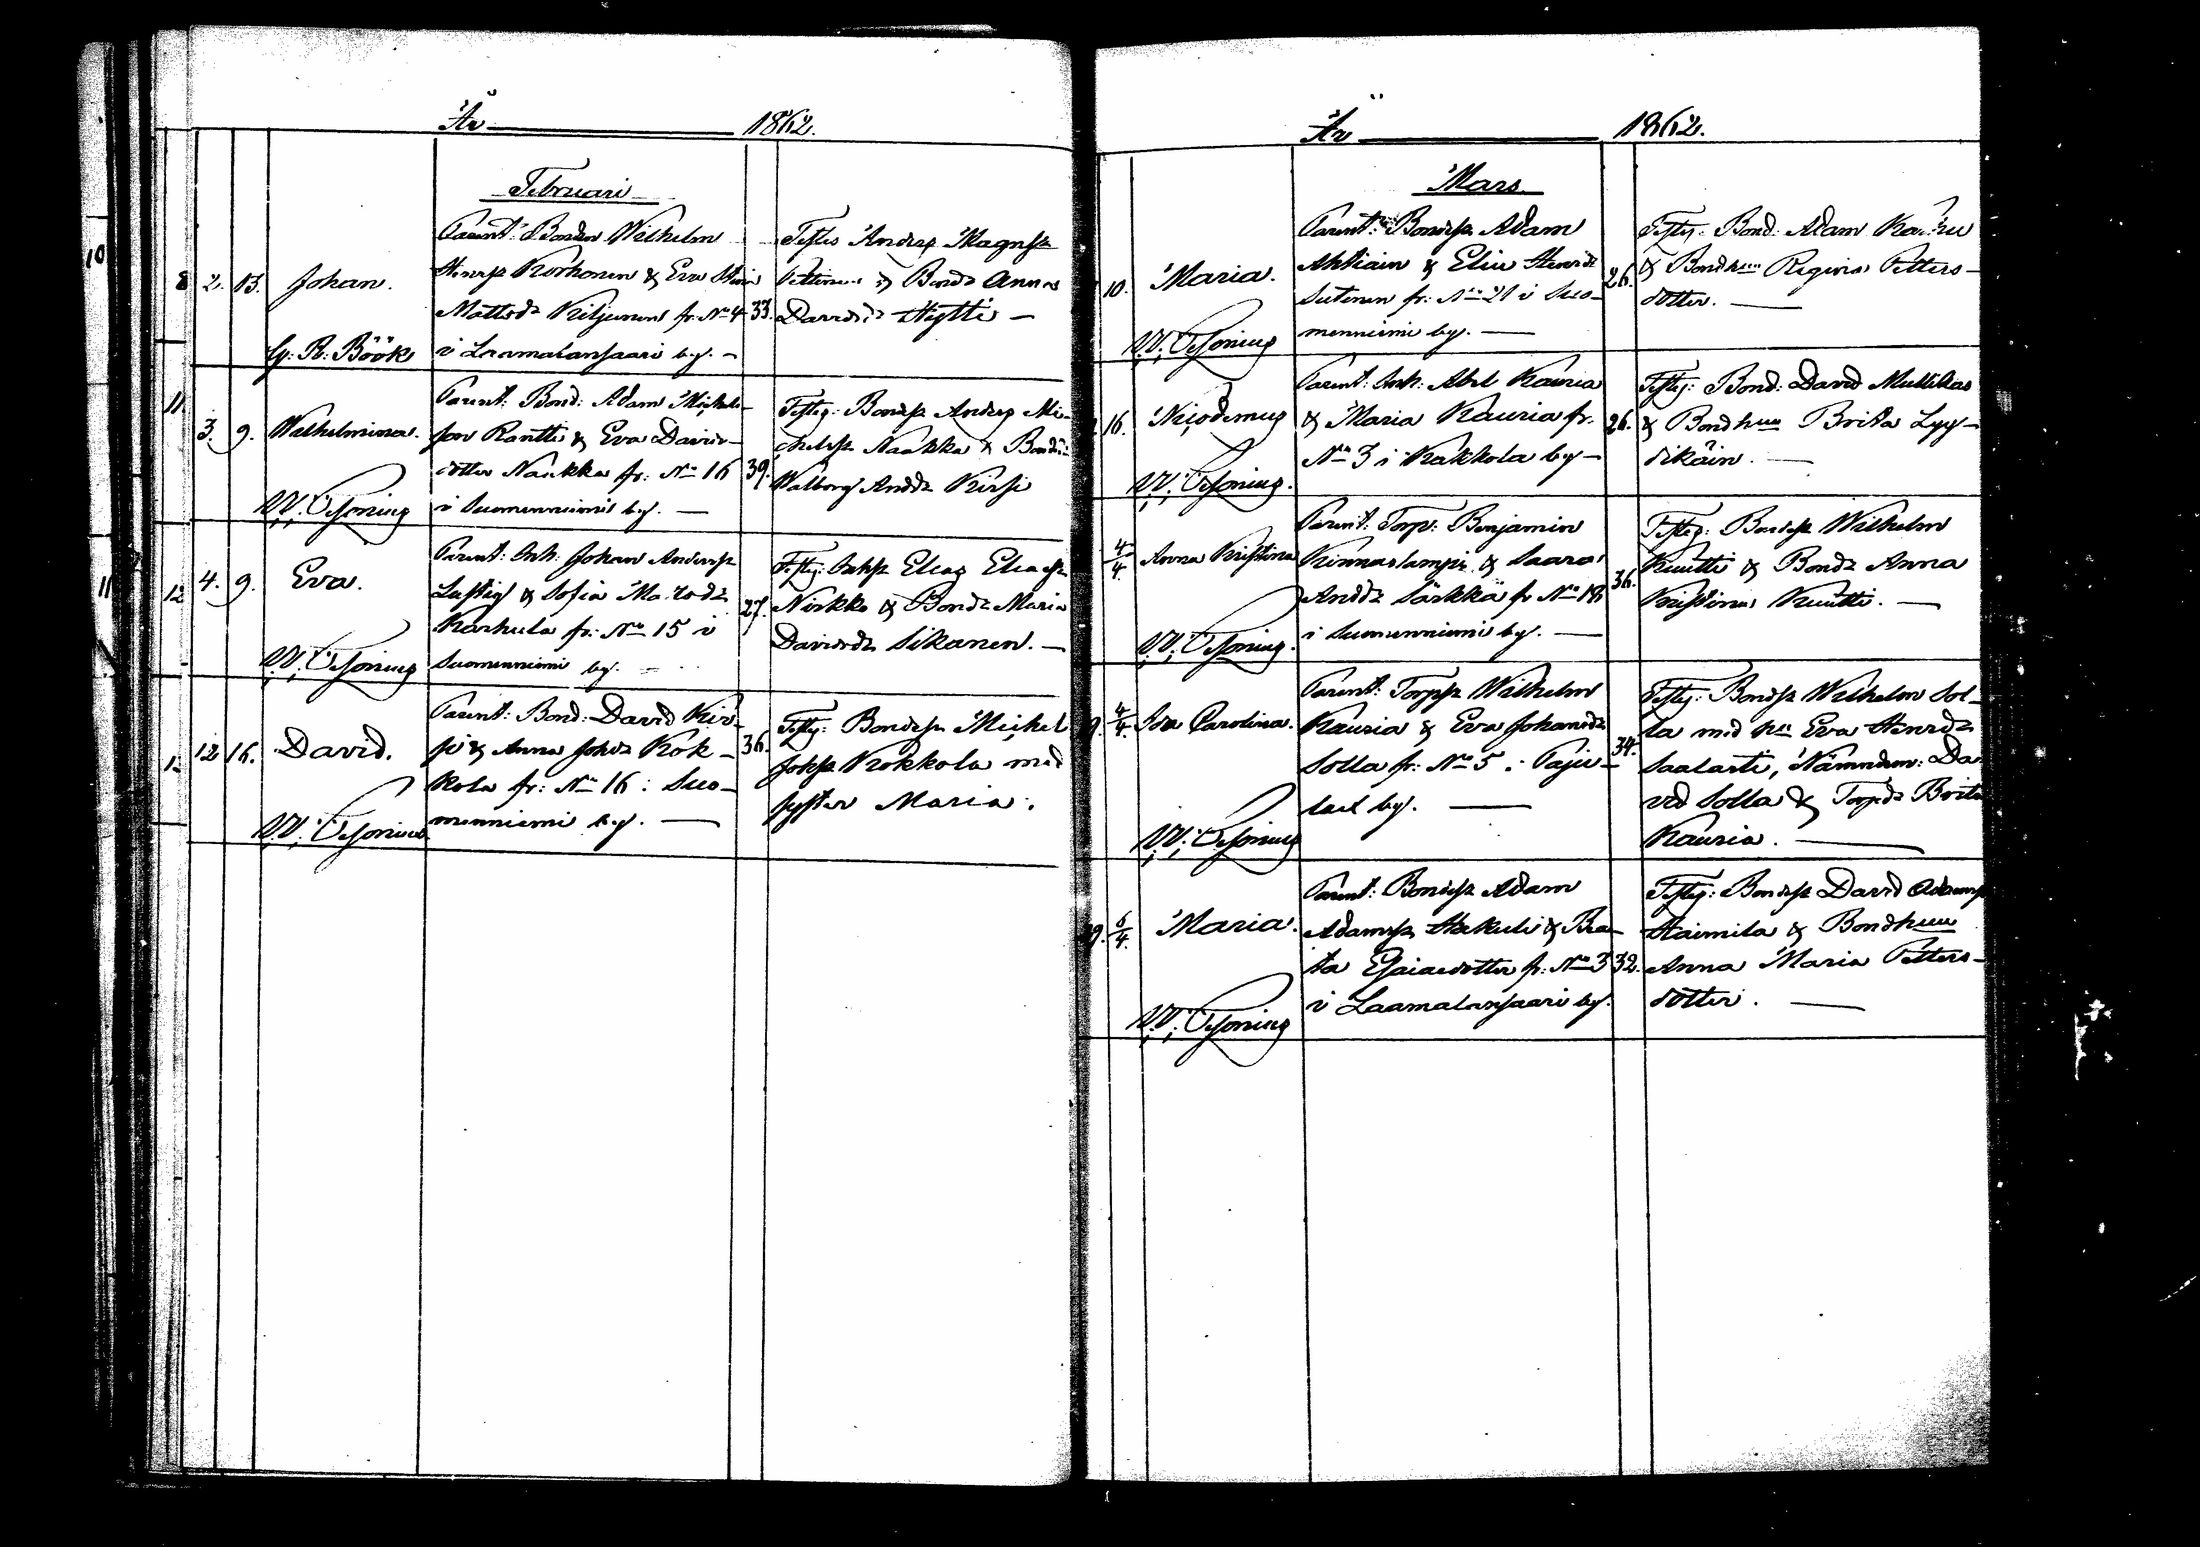 År 1862.
Februari
8 2. 13. Johan.
G. R. Böök
Parent: Bonden Wilhelm
Henrsn Korhonen & Eva Stina
Mattsdr Kiljunen fr. No 4
i Laamalansaari by. —
33.
Testes Anders Magnssn
& Bondr Anna
Davidsdr Hytti —
11. 3. 9. Wilhelmina.
W. Tesoning
Parent: Bond: Adam Michels-
son Rantti & Eva David-
dotter Naukka fr: No 16
i Suomenniemi by. —
39.
Testes: Bondsn Anders Mi-
chelsn Naukka & Bondr
Walborg Andsdr Kirsi
12 4. 9. Eva.
W. Tesoning
Parent: Inh: Johan Anderssn
Lustig & Sofia
Karhula fr: No 15 i
Suomenniemi by. —
27.
Testes: Inhsn Elias Eliassn
Nirkko & Bondr Maria
Davidsdr Sikanen. —
12 16. David.
W. Tesoning
Parent: Bond: David Kir-
si & Anna Johsdr Kok-
kola fr: No 16 i Suo-
menniemi by. —
36.
Testes: Bondesn Michel
Johsn Kokkola med
syster Maria.
År 1862.
Mars
10. Maria.
W. Tesoning
Parent: Bondesn Adam
Ahtiain & Elin Henrsdr
Sutinen fr: No 21 i Suo-
menniemi by. —
26.
Testes: Bond: Adam
& Bondhuu Regina Petters-
dotter. —
16. Nicodemus
W. Tesoning.
Parent: Inh: Abel Kauria
& Maria Kauria fr.
No 3 i Kakkola by —
26.
Testes: Bond: David Mullikas
& Bondhuu Brita Lyy-
dikäin. —
4/4 Anna Kristina
W. Tesoning.
Parent: Torp: Benjamin
Kinnaslampi & Saara
Andsdr Särkkä fr No 18
i Suomenniemi by. —
36.
Testes: Bondesn Wilhelm
Kuutti & Bondr Anna
Kristina Kuutti. —
9. 4/4 Ida Carolina.
W. Tesoning
Parent: Torpsn Wilhelm
Kauria & Eva Johansdr
Solla fr: No 5 i Paju-
lax by. —
34.
Testes: Bondsn Wilhelm Sol-
la med hu Eva Henrsdr
Saalasti, Nämndem: Da-
vid Solla & Torpdr Brita
Kauria. —
6/4 Maria.
W. Tesoning
Parent: Bondesn Adam
Adamsn Hakuli & Bri-
ta Esaiædotter fr: No 3
i Laamalansaari by.
32.
Testes: Bondesn David Adamsn
Haimila & Bondhuu
Anna Maria Petters-
dotter. —
10
11